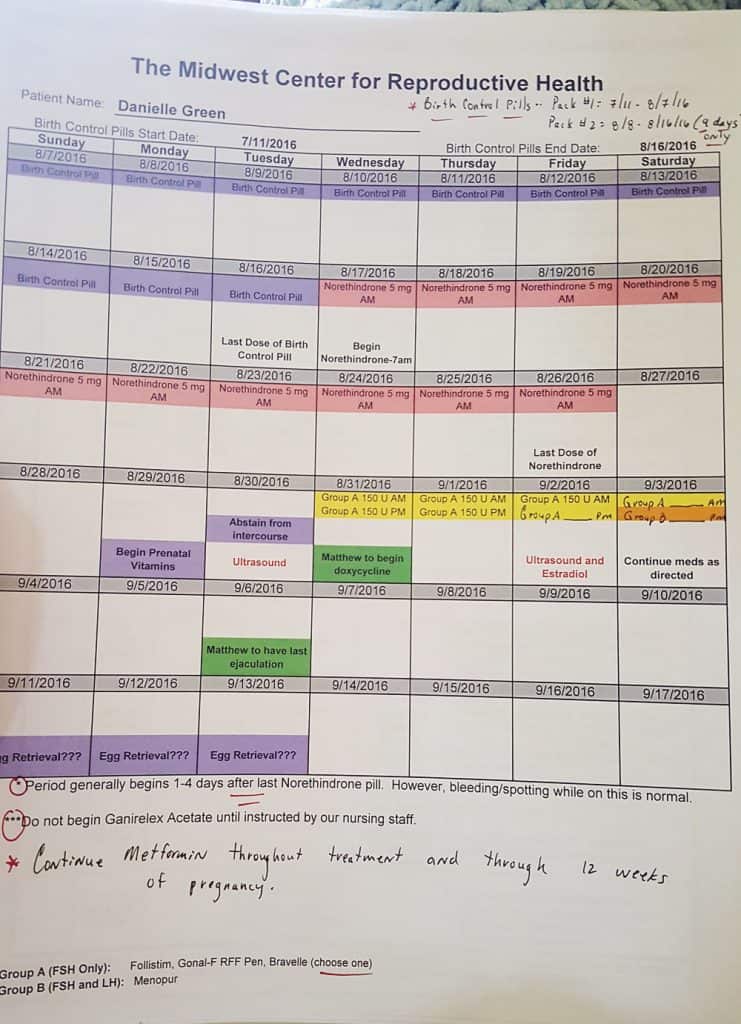 The Midwest Center for Reproductive Health
Patient Name: Danielle Green
* Birth Control Pills -- Pack #1: 7/11 - 8/7/16
Pack #2 = 8/8 - 8/16/16 (9 days only
Birth Control Pills Start Date: 7/11/2016 Birth Control Pills End Date: 8/16/2016
Sunday Monday Tuesday Wednesday Thursday Friday Saturday
8/7/2016 8/8/2016 8/9/2016 8/10/2016 8/11/2016 8/12/2016 8/13/2016
Birth Control Pill Birth Control Pill Birth Control Pill Birth Control Pill Birth Control Pill Birth Control Pill Birth Control Pill
8/14/2016 8/15/2016 8/16/2016 8/17/2016 8/18/2016 8/19/2016 8/20/2016
Birth Control Pill Birth Control Pill Birth Control Pill Norethindrone 5 mg Norethindrone 5 mg Norethindrone 5 mg Norethindrone 5 mg
AM AM AM AM
Last Dose of Birth Begin
Control Pill Norethindrone-7am
8/21/2016 8/22/2016 8/23/2016 8/24/2016 8/25/2016 8/26/2016 8/27/2016
Norethindrone 5 mg Norethindrone 5 mg Norethindrone 5 mg Norethindrone 5 mg Norethindrone 5 mg Norethindrone 5 mg
AM AM AM AM AM AM
Last Dose of
Norethindrone
8/28/2016 8/29/2016 8/30/2016 8/31/2016 9/1/2016 9/2/2016 9/3/2016
Group A 150 U AM Group A 150 U AM Group A 150 U AM Group A ____ Am
Group A 150 U PM Group A 150 U PM Group A ____ Pm Group B ____ Pm
Abstain from
intercourse
Begin Prenatal Ultrasound Matthew to begin Ultrasound and Continue meds as
Vitamins doxycycline Estradiol directed
9/4/2016 9/5/2016 9/6/2016 9/7/2016 9/8/2016 9/9/2016 9/10/2016
Matthew to have last
ejaculation
9/11/2016 9/12/2016 9/13/2016 9/14/2016 9/15/2016 9/16/2016 9/17/2016
g Retrieval??? Egg Retrieval??? Egg Retrieval???
*Period generally begins 1-4 days after last Norethindrone pill. However, bleeding/spotting while on this is normal.
***Do not begin Ganirelex Acetate until instructed by our nursing staff.
* Continue Metformin throughout treatment and through 12 weeks
of pregnancy.
Group A (FSH Only): Follistim, Gonal-F RFF Pen, Bravelle (choose one)
Group B (FSH and LH): Menopur